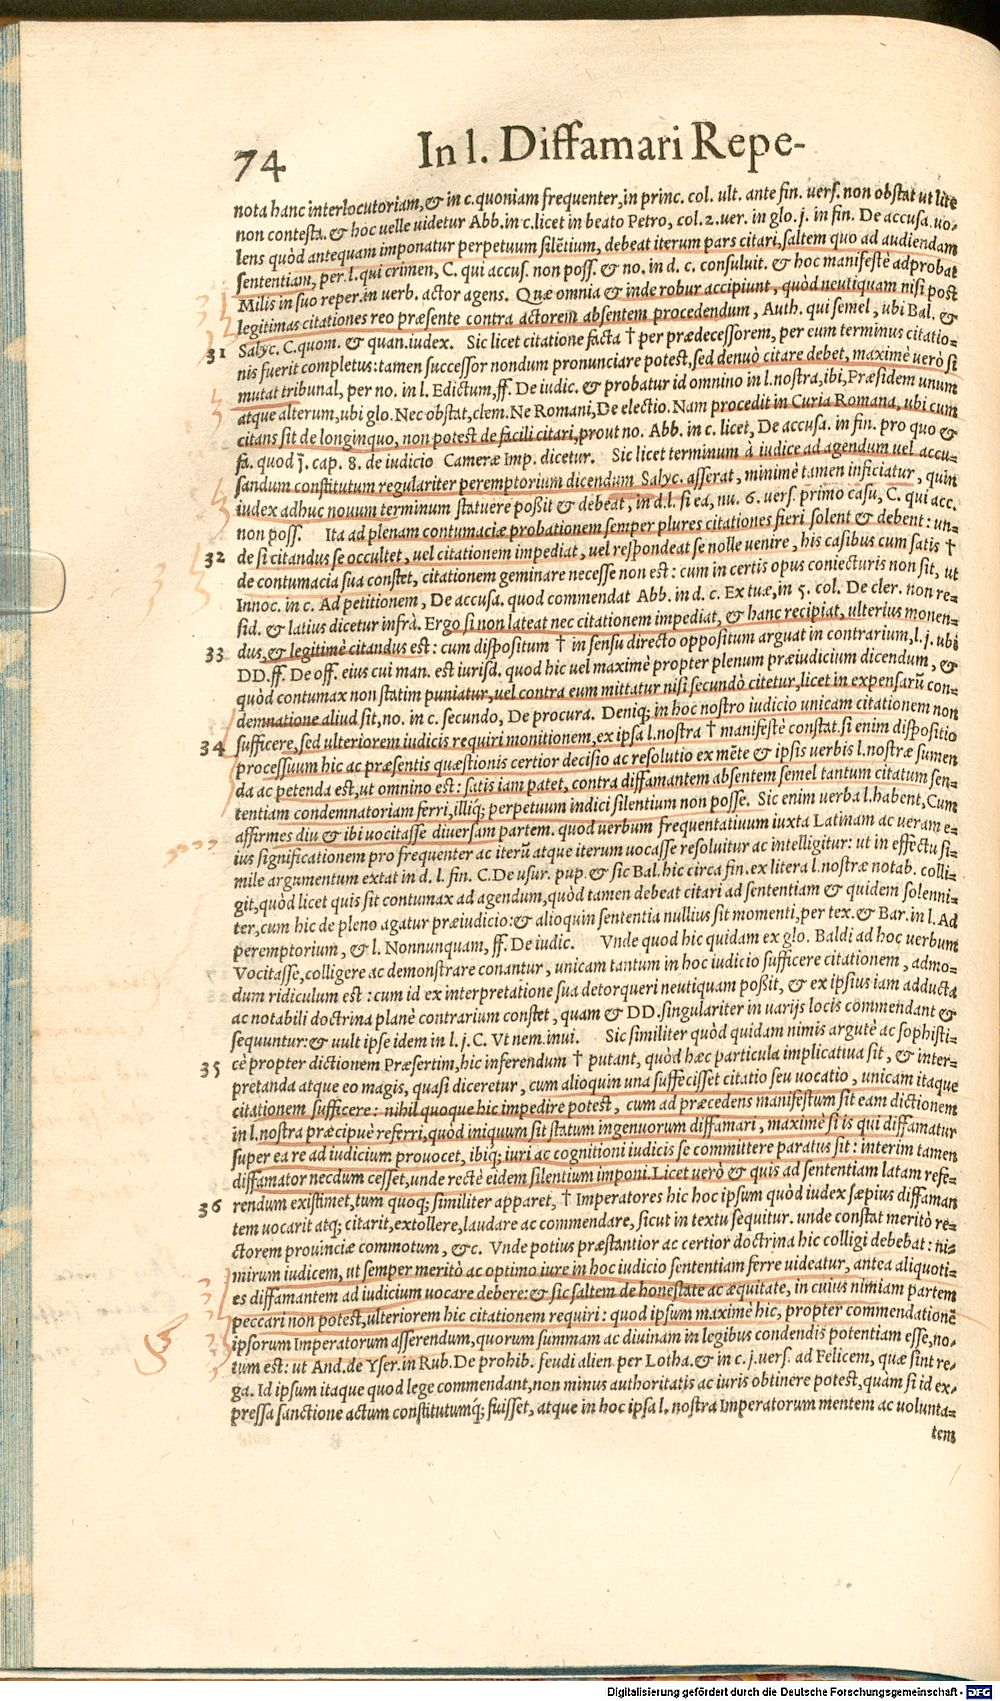 74 In l. Diffamari Repe-
nota hanc interlocutoriam, & in c. quoniam frequenter, in princ. col. ult. ante fin. vers. non obstat ut lite
non contesta. & hoc uelle uidetur Abb. in c. licet in beato Petro, col. 2. ver. in glo. j. in fin. De accusa. uo-
lens quòd antequam imponatur perpetuum silẽtium, debeat iterum pars citari, saltem quo ad audiendam
sententiam, per. l. qui crimen, C. qui accus. non poss. & no. in d. c. consuluit. & hoc manifestè adprobat
Milis in suo reper. in verb. actor agens. Quæ omnia & inde robur accipiunt, quòd neutiquam nisi post
legitimas citationes reo præsente contra actorem absentem procedendum, Auth. qui semel, ubi Bal. &
31 Salyc. C. quom. & quan. iudex. Sic licet citatione facta † per prædecessorem, per cum terminus citatio-
nis fuerit completus: tamen successor nondum pronunciare potest, sed denuò citare debet, maximè verò si
mutat tribunal, per no. in l. Edictum, ff. De iudic. & probatur id omnino in l. nostra, ibi, Præsidem unum
atque alterum, ubi glo. Nec obstat, clem. Ne Romani, De electio. Nam procedit in Curia Romana, ubi cum
citans sit de longinquo, non potest de facili citari, prout no. Abb. in c. licet, De accusa. in fin. pro quo &
fa. quod j̃. cap. 8. de iudicio Cameræ Imp. dicetur. Sic licet terminum à iudice ad agendum vel accu-
sandum constitutum regulariter peremptorium dicendum Salyc. asserat, minimè tamen inficiatur, quin
iudex adhuc nouum terminum statuere possit & debeat, in d. l. si ea, nu. 6. vers. primo casu, C. qui acc.
non poss. Ita ad plenam contumaciæ probationem semper plures citationes fieri solent & debent: un-
32 de si citandus se occultet, uel citationem impediat, uel respondeat se nolle venire, his casibus cum satis †
de contumacia sua constet, citationem geminare necesse non est: cum in certis opus coniecturis non sit, ut
Innoc. in c. Ad petitionem, De accusa. quod commendat Abb. in d. c. Ex tuæ, in 5. col. De cler. non re-
sid. & latius dicetur infrà. Ergo si non lateat nec citationem impediat, & hanc recipiat, ulterius monen-
33 dus, & legitimè citandus est: cum dispositum † in sensu directo oppositum arguat in contrarium, l. j. ubi
DD. ff. De off. eius cui man. est iurisd. quod hic uel maximè propter plenum præiudicium dicendum, &
quòd contumax non statim puniatur, uel contra eum mittatur nisi secundò citetur, licet in expensarũ con-
demnatione aliud sit, no. in c. secundo, De procura. Deniq; in hoc nostro iudicio unicam citationem non
34 sufficere, sed ulteriorem iudicis requiri monitionem, ex ipsa l. nostra † manifestè constat. si enim dispositio
processuum hic ac præsentis quæstionis certior decisio ac resolutio ex mẽte & ipsis verbis l. nostræ sumen
da ac petenda est, ut omnino est: satis iam patet, contra diffamantem absentem semel tantum citatum sen-
tentiam condemnatoriam ferri, illiq; perpetuum indici silentium non posse. Sic enim verba l. habent, Cum
affirmes diu & ibi vocitasse diuersam partem. quod verbum frequentatiuum iuxta Latinam ac veram e-
ius significationem pro frequenter ac iterũ atque iterum uocasse resoluitur ac intelligitur: ut in effectu si-
mile argumentum extat in d. l. fin. C. De usur. pup. & sic Bal. hic circa fin. ex litera l. nostræ notab. colli-
git, quòd licet quis sit contumax ad agendum, quòd tamen debeat citari ad sententiam & quidem solenni-
ter, cum hic de pleno agatur præiudicio: & alioquin sententia nullius sit momenti, per tex. & Bar. in l. Ad
peremptorium, & l. Nonnunquam, ff. De iudic. Vnde quod hic quidam ex glo. Baldi ad hoc verbum
Vocitasse, colligere ac demonstrare conantur, unicam tantum in hoc iudicio sufficere citationem, admo-
dum ridiculum est: cum id ex interpretatione sua detorqueri neutiquam possit, & ex ipsius iam adducta
ac notabili doctrina planè contrarium constet, quam & DD. singulariter in varijs locis commendant &
sequuntur: & uult ipse idem in l. j. C. Vt nem. inui. Sic similiter quòd quidam nimis argutè ac sophisti-
35 cè propter dictionem Præsertim, hic inferendum † putant, quòd hæc particula implicatiua sit, & inter-
pretanda atque eo magis, quasi diceretur, cum alioquin una suffecisset citatio seu vocatio, unicam itaque
citationem sufficere: nihil quoque hic impedire potest, cum ad præcedens manifestum sit eam dictionem
in l. nostra præcipuè referri, quòd iniquum sit statum ingenuorum diffamari, maximè si is qui diffamatur
super ea re ad iudicium prouocet, ibiq; iuri ac cognitioni iudicis se committere paratus sit: interim tamen
diffamator necdum cesset, unde rectè eidem silentium imponi. Licet verò & quis ad sententiam latam refe-
36 rendum existimet, tum quoq; similiter apparet, † Imperatores hic hoc ipsum quòd iudex sæpius diffaman
tem vocarit atq; citarit, extollere, laudare ac commendare, sicut in textu sequitur. unde constat meritò re-
ctorem prouinciæ commotum, &c. Vnde potius præstantior ac certior doctrina hic colligi debebat: ni-
mirum iudicem, ut semper meritò ac optimo iure in hoc iudicio sententiam ferre uideatur, antea aliquoti-
es diffamantem ad iudicium uocare debere: & sic saltem de honestate ac æquitate, in cuius nimiam partem
peccari non potest, ulteriorem hic citationem requiri: quod ipsum maximè hic, propter commendationẽ
ipsorum Imperatorum asserendum, quorum summam ac diuinam in legibus condendis potentiam esse, no-
tum est: ut And. de Yser. in Rub. De prohib. feudi alien. per Lotha. & in c. j. vers. ad Felicem, quæ sint re-
ga. Id ipsum itaque quod lege commendant, non minus authoritatis ac iuris obtinere potest, quàm si id ex-
pressa sanctione actum constitutumq; fuisset, atque in hoc ipsa l. nostra Imperatorum mentem ac uolunta-
tem
Digitalisierung gefördert durch die Deutsche Forschungsgemeinschaft - DFG